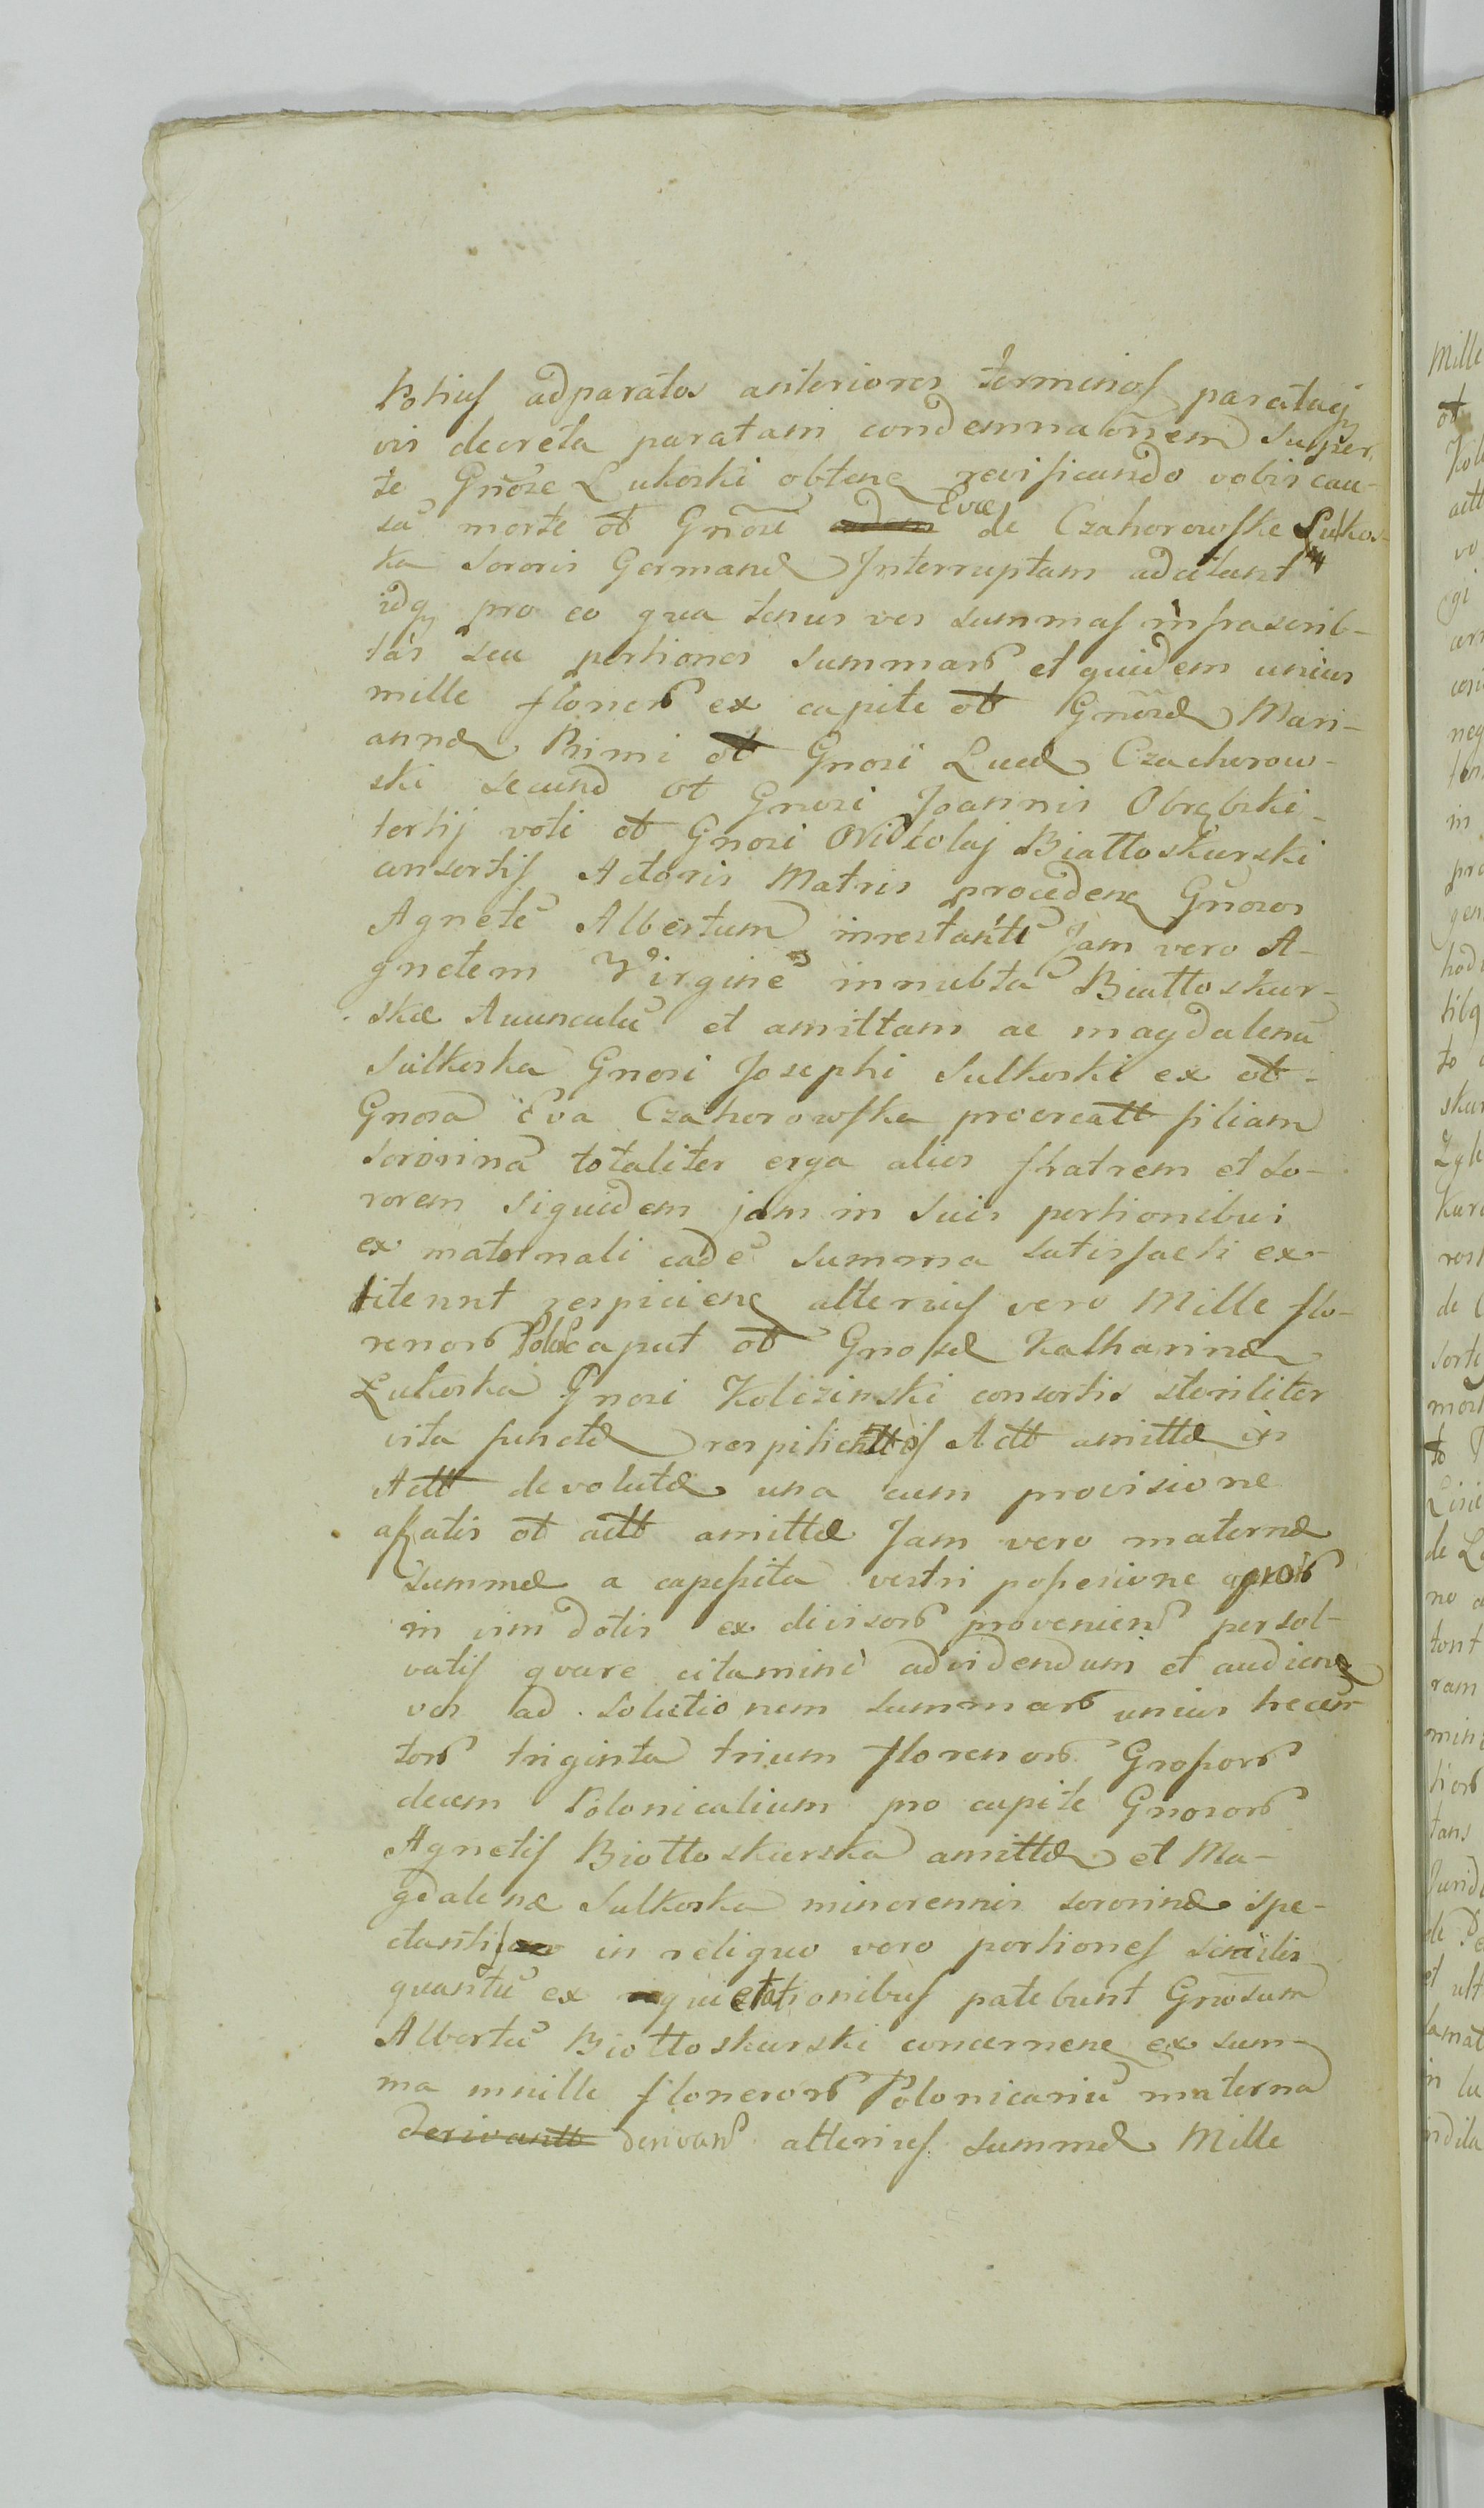 Potius adparatos anteriores terminos paratasq
vis decreta paratam condemnaōnem super
te Gnōse Lukoski obtenę revificando vobis cau-
sā morte ot Gnōse Evæ de Czahorowske Sulkos-
ka Sororis Germanæ Interruptam adcitant
idq pro eo qua tenus vos summas infrascrib-
tas seu portiones summarō et quidem unius
mille florenō ex capite ot Gnōsæ Mari-
annæ Primi ot Gnosi Lucæ Czachorow-
ski secund ot Gnosi Joannis Obrębski
tertij voti ot Gnosi Nicolaj Biattoskurski
consortis Actoris Matris procedenę Gnōsos
Agnetē Albertum inrestantē Jam vero A-
gnetem Virginē innubtā Biattoskur-
skæ Avunculū et amittam ac magdalenā
Sulkoska Gnosi Josephi Sulkoski ex ot
Gnosa Eva Czahorowska procreatt filiam
Sororinā totaliter erga alios fratrem et so-
rorem siquidem jam in suis portionibus
ex maternali eadē summa satisfacti ex-
titerunt respicienę alterius vero Mille flo-
renorō Polō caput ot Gnosæ Katharinæ
Lukoska Gnosi Kolizinski consortis steriliter
vita functæ respilientis Actt amittæ in
Actt devolutæ una cum provisione
a ratis ot actt amittæ Jam vero maternæ
summæ a capessita vestri possesione
in vim dotis ex divisorō provenienō persol-
vatis qvare citamini advidendum et audienę
vos ad solutionem summarō unius trecen-
torō triginta trium florenorō Grossorō
decem Polonicalium pro capite Gnosorō
Agnetis Biottoskurska amittæ et Ma-
gdalenæ Sulkoska minorennis sororinæ spe-
ctantis in reliquo vero portiones similis
quantū ex quietationibus patebunt Gnōsum
Albertū Biottoskurski concernenę ex sum-
ma mille florenorō Polonicariū materna
derivantt derivanō alterius summæ Mille